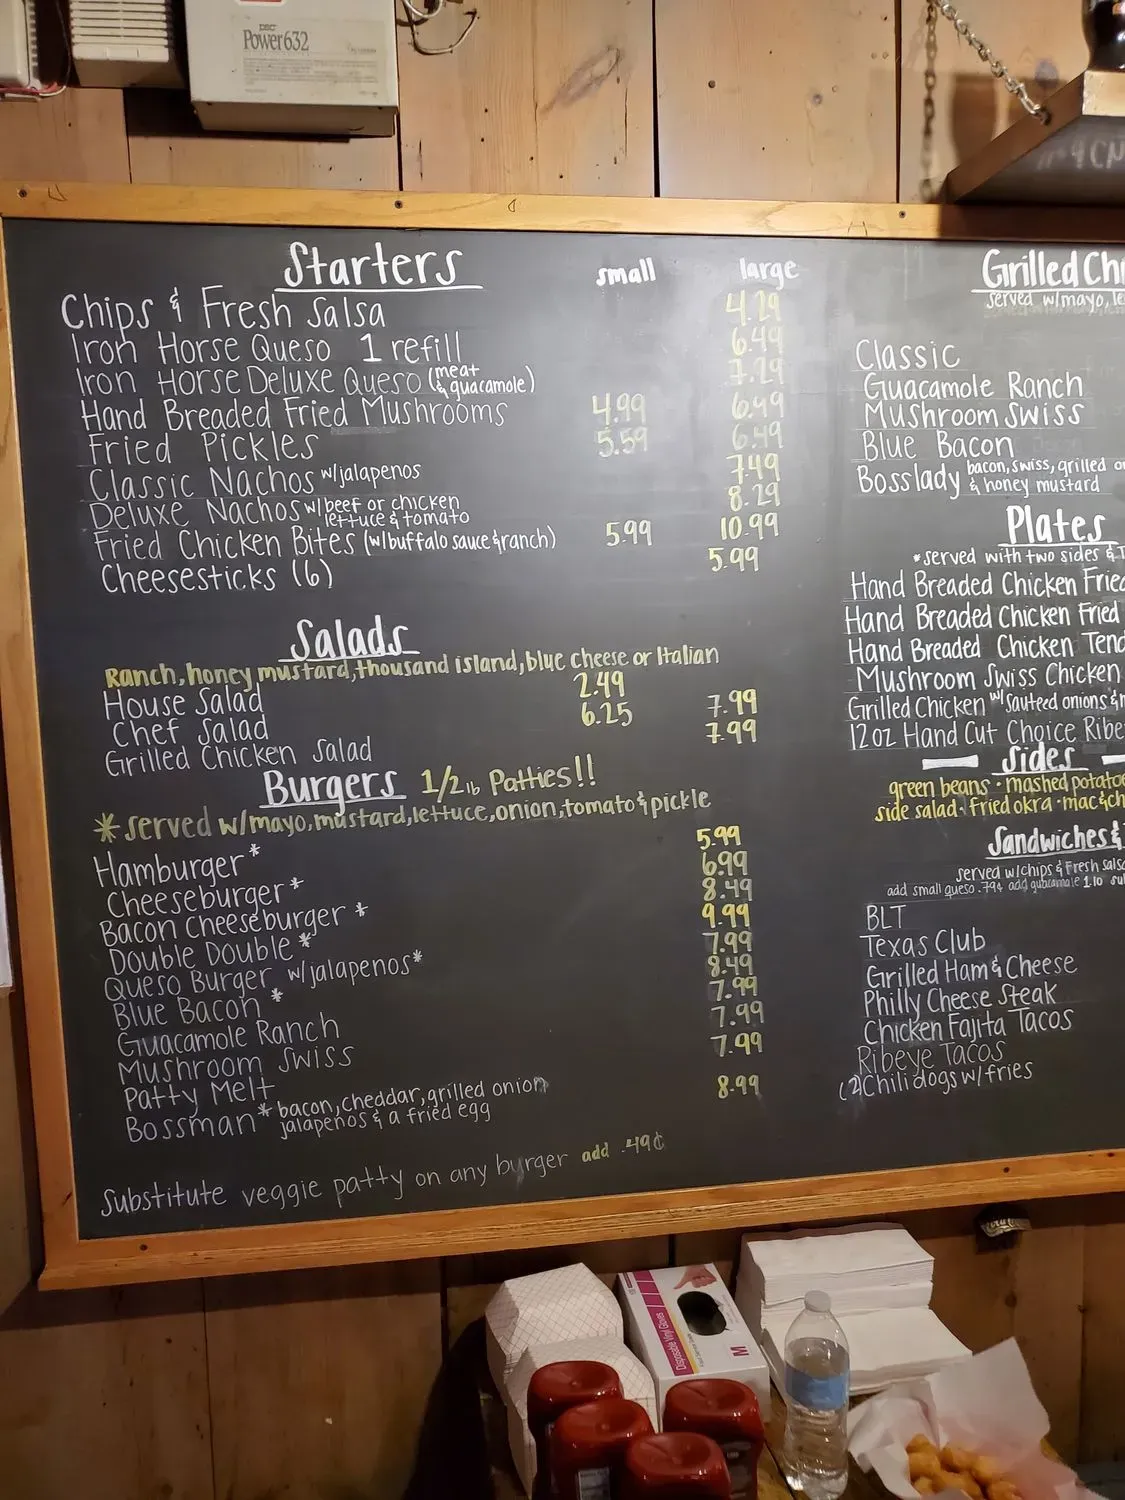 psc
Power632
Starters small large
Chips & Fresh Salsa 4.29
Iron Horse Queso 1 refill 6.49
Iron Horse Deluxe Queso (meat & guacamole) 7.29
Hand Breaded Fried Mushrooms 4.99 6.49
Fried Pickles 5.59 6.49
Classic Nachos w/jalapenos 7.49
Deluxe Nachos w/beef or chicken lettuce & tomato 8.29
Fried Chicken Bites (w/buffalo sauce & ranch) 5.99 10.99
Cheesesticks (6) 5.99
Salads
Ranch, honey mustard, thousand island, blue cheese or Italian
House Salad 2.49
Chef Salad 6.25 7.99
Grilled Chicken Salad 7.99
Burgers 1/2 lb Patties!!
*served w/mayo, mustard, lettuce, onion, tomato & pickle
Hamburger* 5.99
Cheeseburger* 6.99
Bacon Cheeseburger* 8.49
Double Double* 9.99
Queso Burger w/jalapenos* 7.99
Blue Bacon* 8.49
Guacamole Ranch 7.99
Mushroom Swiss 7.99
Patty Melt 7.99
Bossman* bacon, cheddar, grilled onion 8.99
jalapenos & a fried egg
Substitute veggie patty on any burger add .49¢
Grilled Ch
served w/mayo, le
Classic
Guacamole Ranch
Mushroom Swiss
Blue Bacon
Bosslady bacon, swiss, grilled o
& honey mustard
Plates
*served with two sides & T
Hand Breaded Chicken Frie
Hand Breaded Chicken Fried
Hand Breaded Chicken Tend
Mushroom Swiss Chicken
Grilled Chicken w/sauteed onions &
12oz Hand Cut Choice Ribe
Sides
green beans · mashed potatoe
side salad · fried okra · mac & ch
Sandwiches &
served w/chips & Fresh Salsa
add small queso .79¢ add guacamole 1.10 su
BLT
Texas Club
Grilled Ham & Cheese
Philly Cheese Steak
Chicken Fajita Tacos
Ribeye Tacos
(2) Chili dogs w/fries
Disposable Vinyl Gloves
M